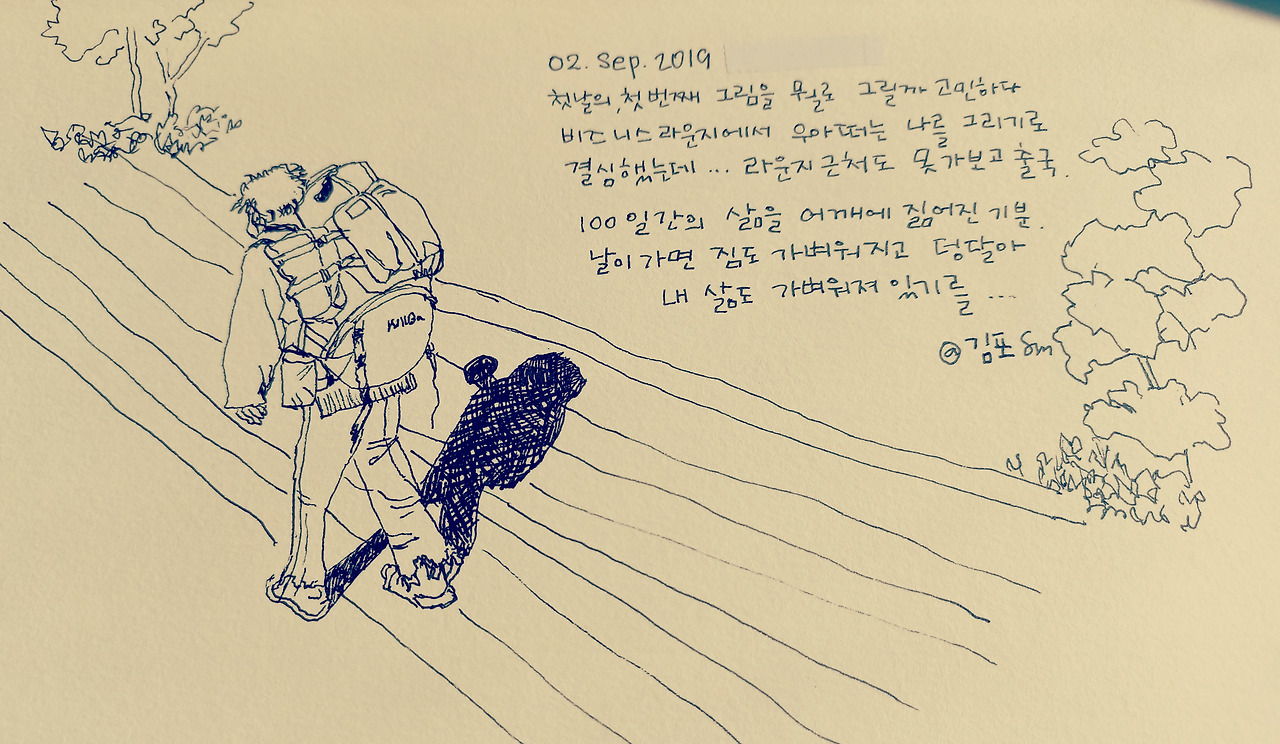 02. Sep. 2019
첫날의, 첫번째 그림을 무얼로 그릴까 고민하다
비즈니스라운지에서 우아떠는 나를 그리기로
결심했는데... 라운지근처도 못가보고 출국.
100일간의 삶을 어깨에 짊어진 기분.
날이가면 짐도 가벼워지고 덩달아
내 삶도 가벼워져 있기를...
@김포 Sm